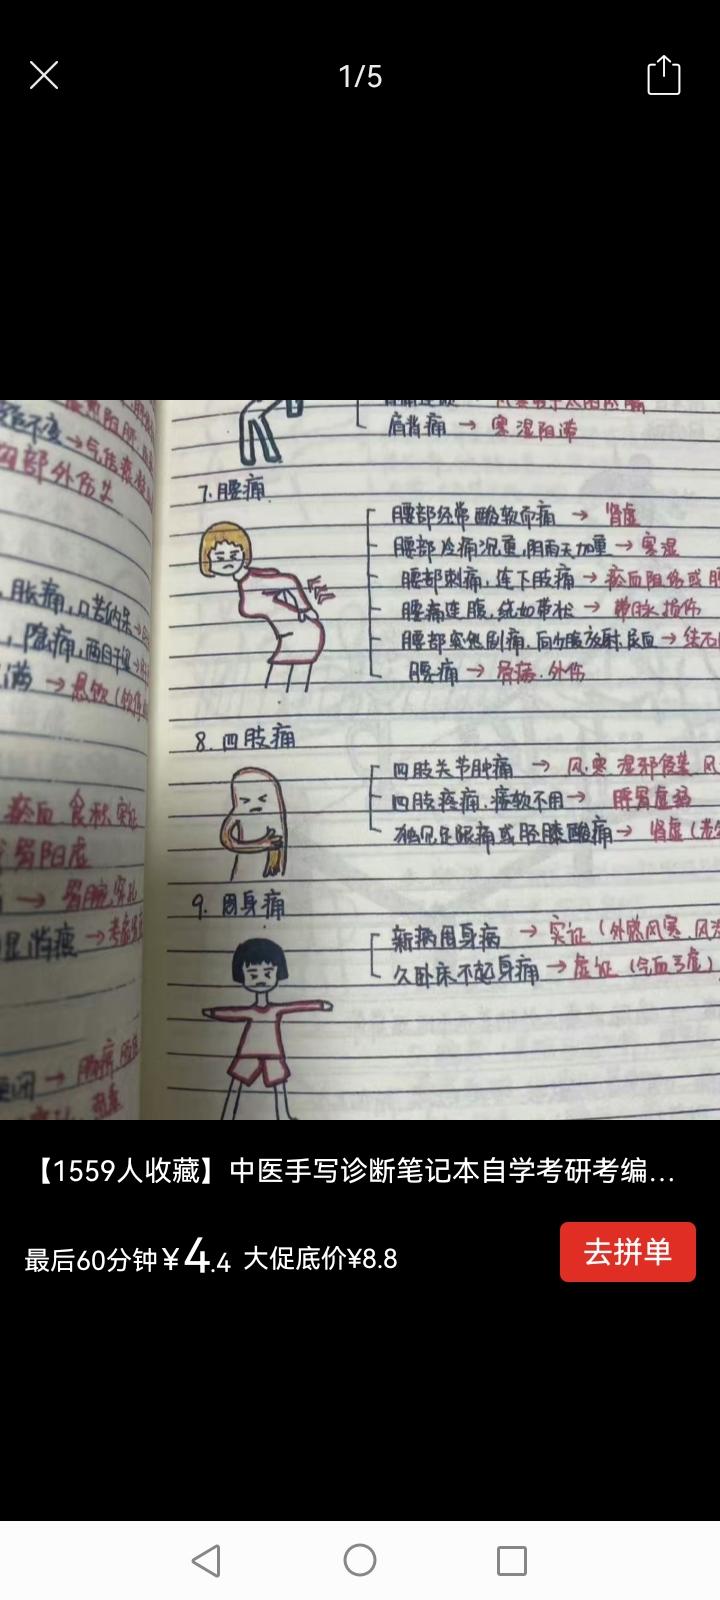 1/5
肩背痛 → 寒湿阻滞
7.腰痛
腰部经常酸软而痛 → 肾虚
腰部冷痛沉重,阴雨天加重 → 寒湿
腰部刺痛,连下肢痛 → 瘀血阻络或腰
腰痛连腹,绕如带状 → 带脉损伤
腰部突然剧痛,向少腹放射,尿血 → 结石
腰痛 → 骨病.外伤
8.四肢痛
四肢关节肿痛 → 风.寒 湿邪侵袭 风
四肢疼痛.痿软不用 → 脾胃虚弱
独见足跟痛或胫膝酸痛 → 肾虚(老
9.周身痛
新病周身痛 → 实证(外感风寒 风
久卧床不起身痛 → 虚证(气血亏虚)
四部外伤
胀痛,口苦纳呆
隐痛,两目干涩
满 → 悬饮(
瘀血 食积 实证
胃阳虚
→ 胃脘
显消瘦 →
【1559人收藏】中医手写诊断笔记本自学考研考编...
最后60分钟¥4.4 大促底价¥8.8
去拼单